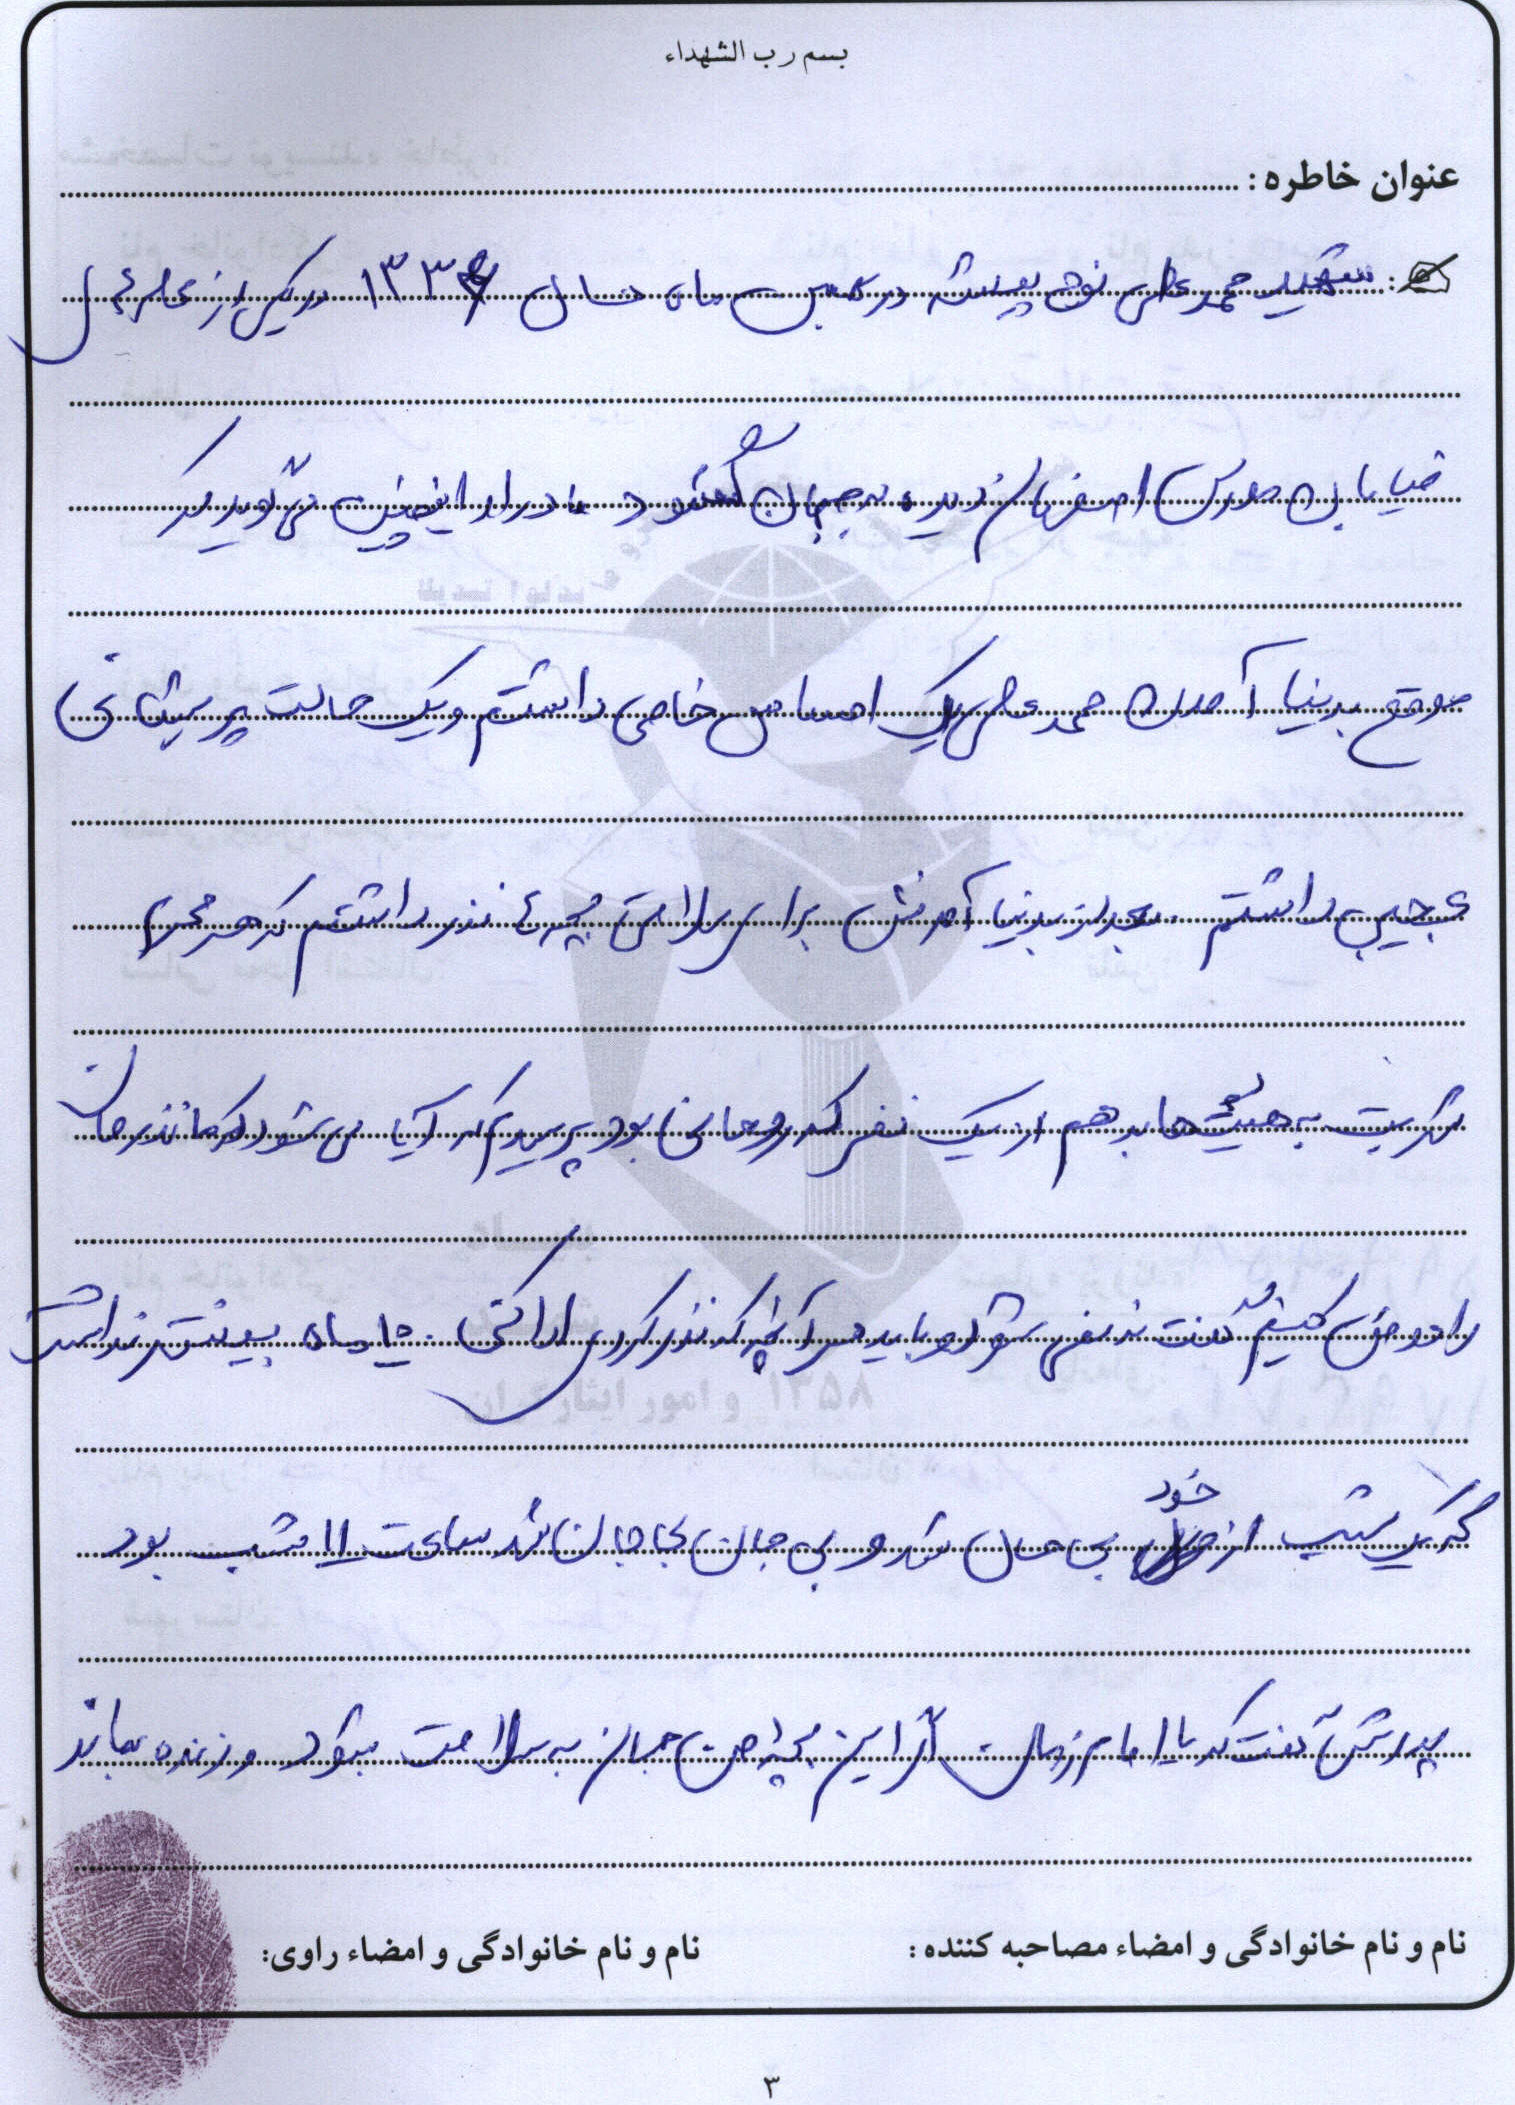 بسم رب الشهداء
عنوان خاطره :
شهید محمد علی نوحه پیشه در ماه سال ۱۳۳۶ در یکی از محله های
خیابان اصفهان دیده به جهان گشود مادر او اینچنین می گوید که
موقع بدنیا آمدن محمد علی یک احساس خاصی داشتم و یک حالت پریشانی
عجیبی داشتم . بعد از بدنیا آمدنش برای سلامتی بچه نذر داشتم که هر محرم
شربت به هیئت ها بدهم از یک نفر که روحانی بود پرسیدم که آیا می شود که ما نذرمان
را عوض کنیم گفت نه نمی شود و باید هر آنچه که نذر کردی ادا کنی . ماه بیشتر نداشت
که یک شب از خود بی حال شد و بی جان ساعت ۱۱ شب بود
پدرش گفت که یا امام زمان اگر این بچه من به سلامت بشود و زنده بماند
نام و نام خانوادگی و امضاء مصاحبه کننده :
نام و نام خانوادگی و امضاء راوی:
۳